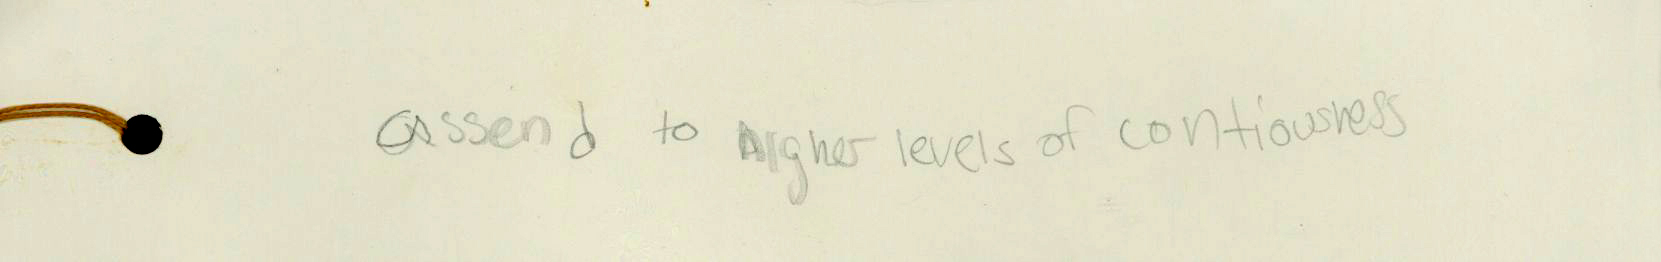 assend to higher levels of contiousness